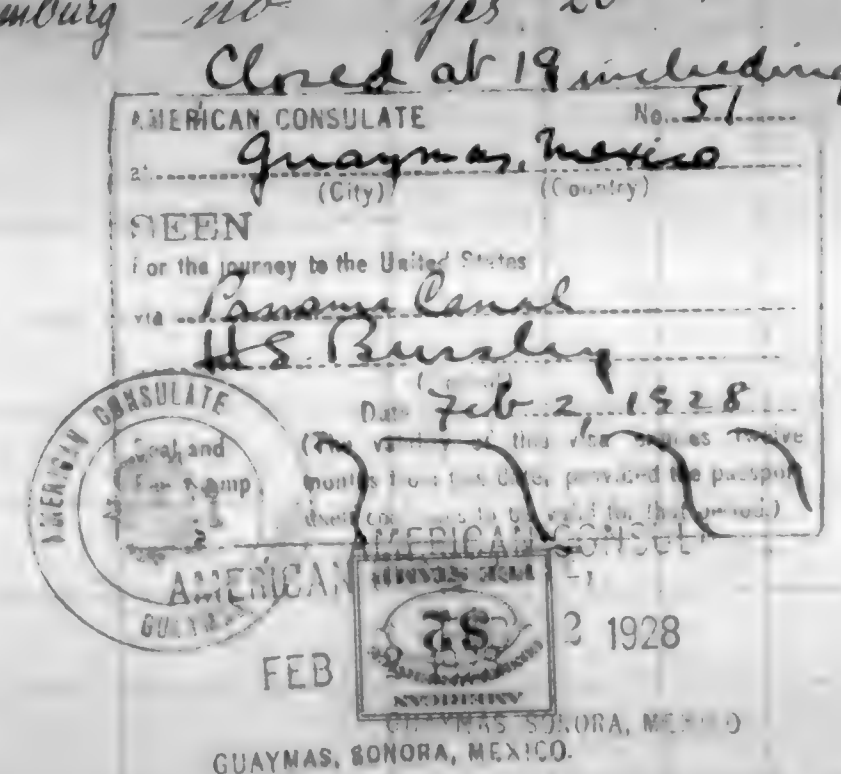 mburg no yes 20
Closed at 19 including
AMERICAN CONSULATE No. 51
at Guaymas, Mexico
(City) (Country)
SEEN
For the journey to the United States
via Panama Canal
H S Bursley
Date Feb 2, 1928
Seal and (The validity of this visa expires twelve
Fee Stamp months from this date, provided the passport
continues to be valid for that period.)
AMERICAN CONSULATE
GUAYMAS
AMERICAN CONSUL
AMERICAN
$2
FEB 2 1928
GUAYMAS SONORA, MEXICO
GUAYMAS, SONORA, MEXICO.